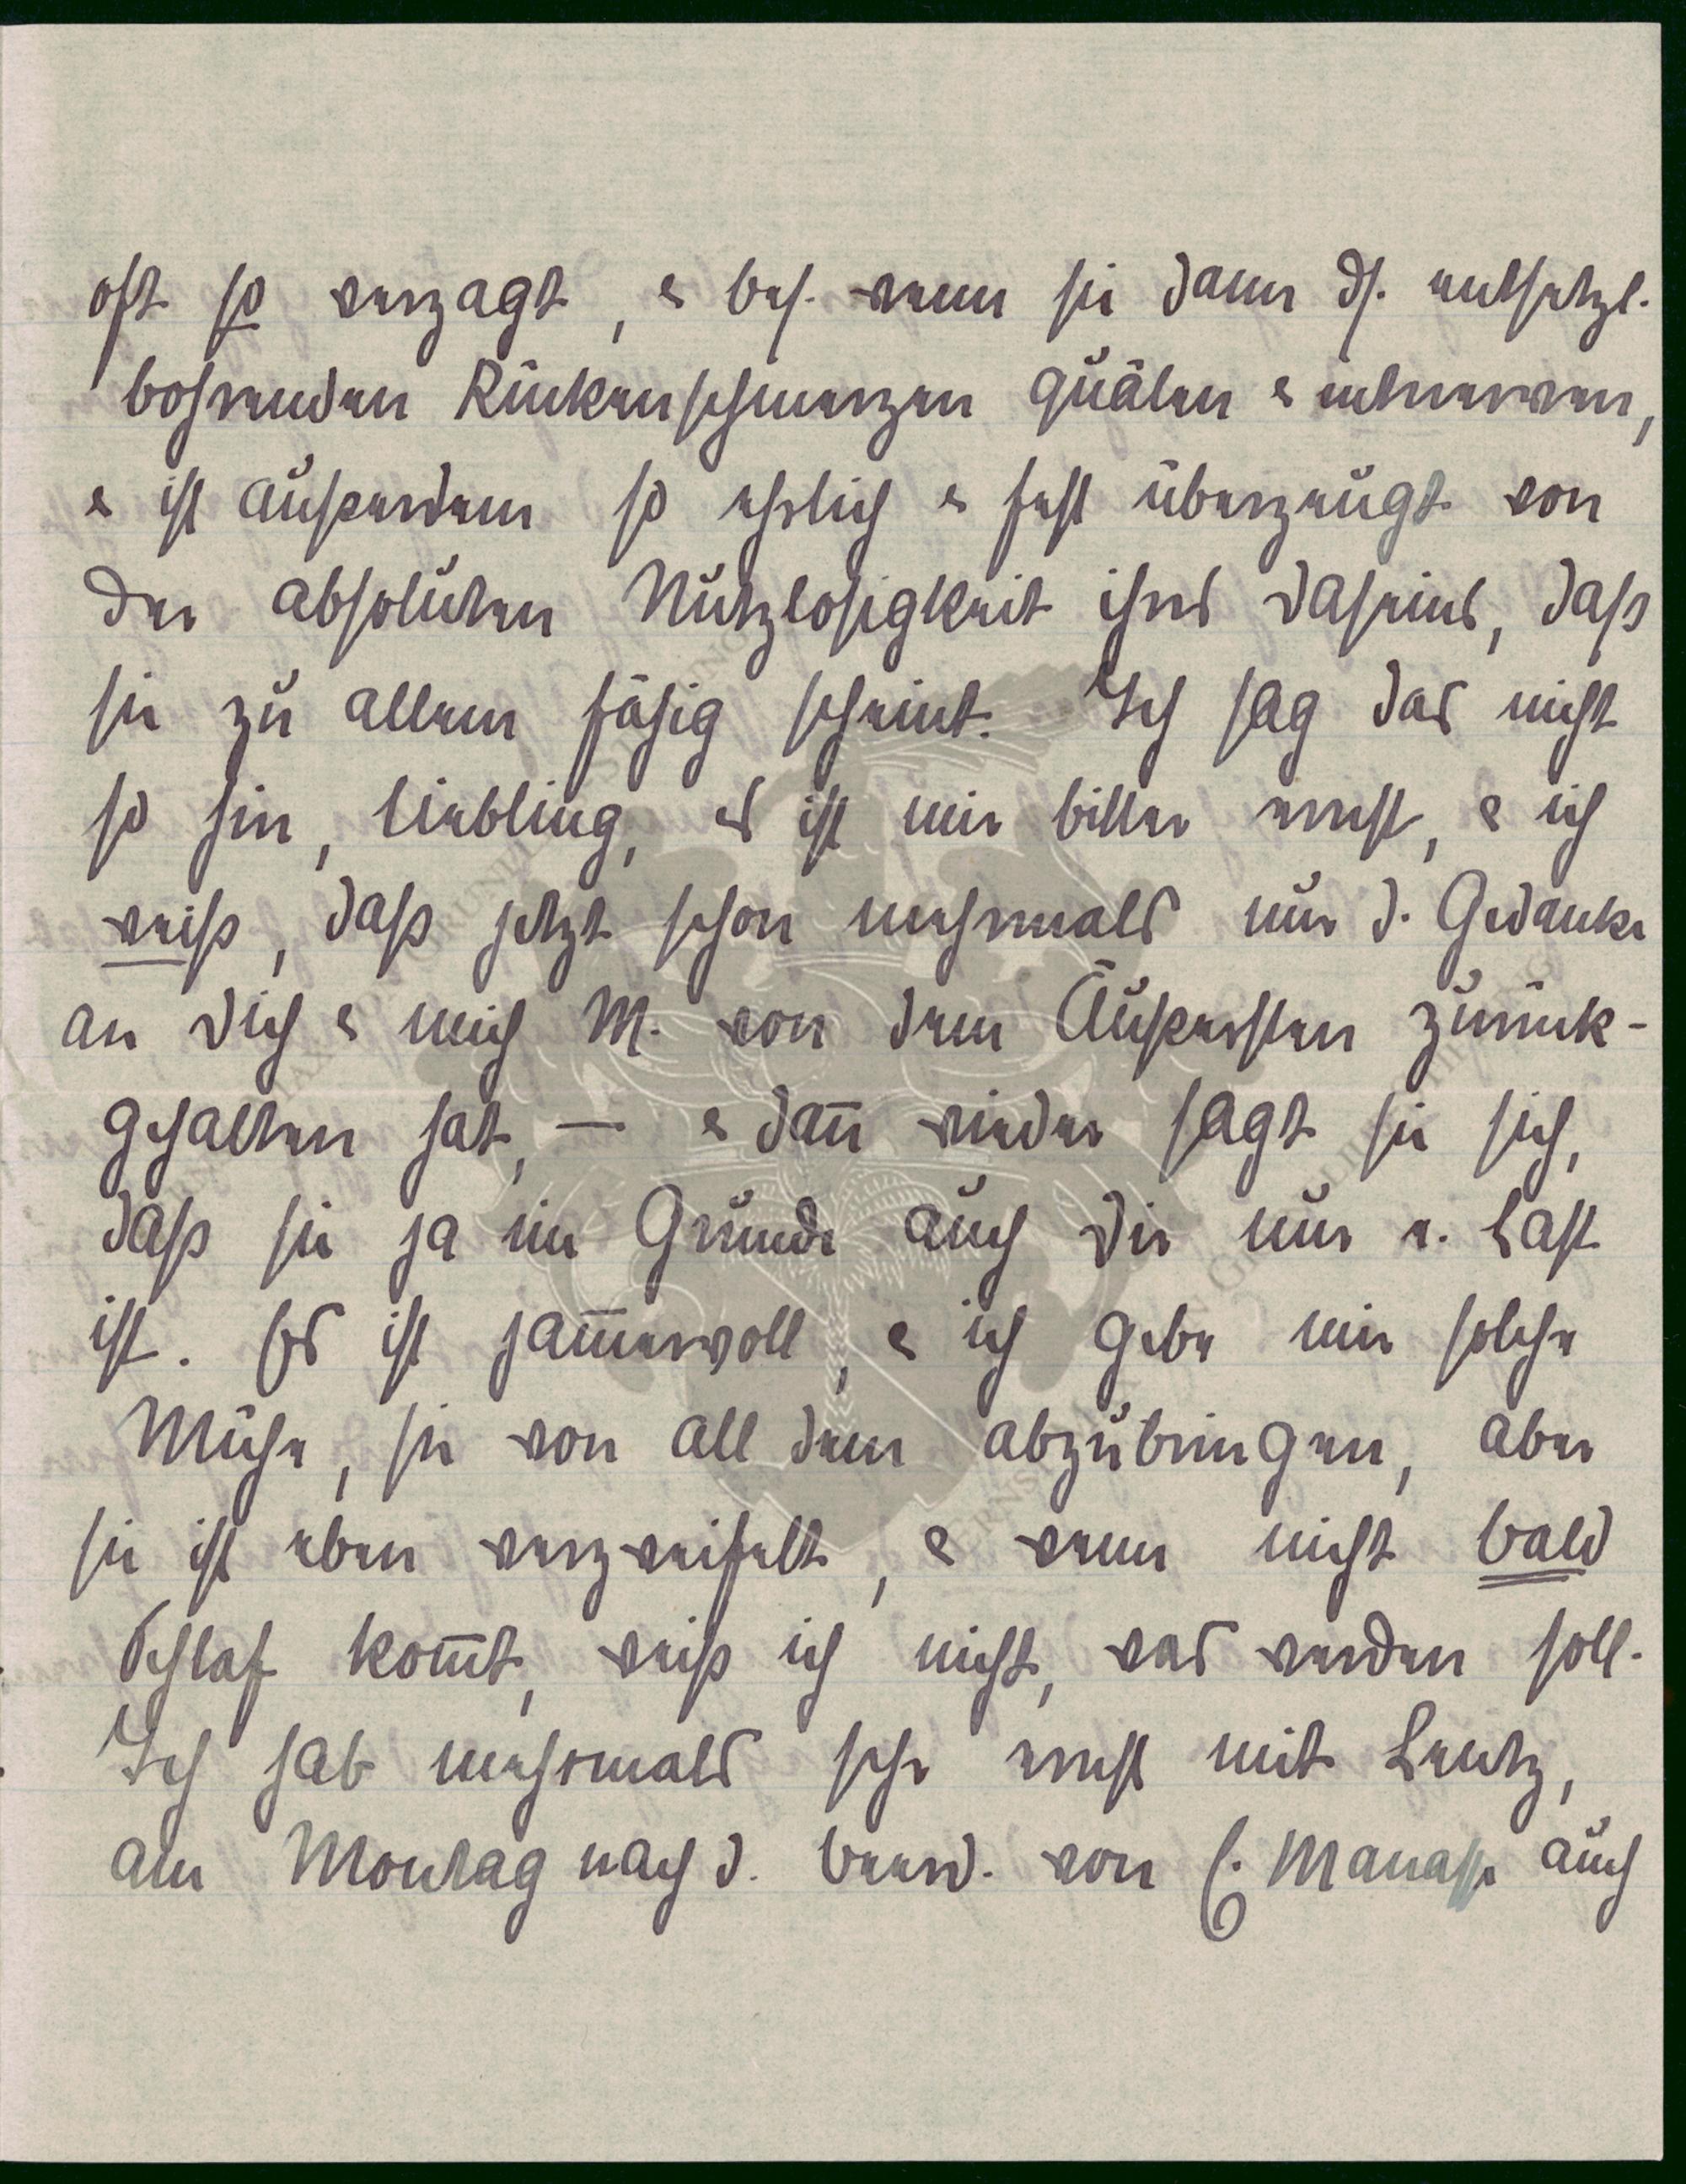 oft so verzagt, & bes. wenn sie dann ds. entsetzl.
bohrenden Rückenschmerzen quälen & entnerven,
& ist außerdem so ehrlich & fest überzeugt von
der absoluten Nutzlosigkeit ihres Daseins, daß
sie zu allem fähig scheint. Ich sag das nicht
so hin, Liebling, es ist mir bitter ernst, & ich
weiß, daß jetzt schon mehrmals nur d. Gedanke
an Dich & mich M. von dem Äußersten zurück-
gehalten hat, — & dan̄ wieder sagt sie sich,
daß sie ja im Grunde auch Dir nur e. Last
ist. Es ist jam̄ervoll, & ich gebe mir solche
Mühe, sie von all dem abzubringen, aber
sie ist eben verzweifelt, & wenn nicht bald
Schlaf kom̄t, weiß ich nicht, was werden soll.
Ich hab mehrmals sehr ernst mit Lentz,
am Montag nach d. Beerd. von E. Manasse auch